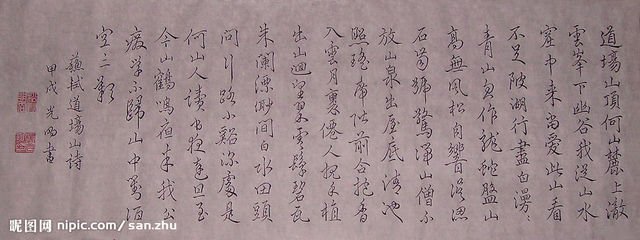 道場山頂何山麓上徹
雲峯下幽谷我從山水
窟中来尚愛此山看
不足陂湖行盡白漫〻
青山忽作龍蛇盤山
高無風松自響誤認
石齒號驚湍山僧不
放山泉出屋底清池
照瑤席階前合抱香
入雲月裏僊人親手植
出山迴望翠雲鬟碧瓦
朱闌縹緲間白水田頭
問行路小谿深處是
何山人讀書夜達旦至
今山鶴鳴夜半我今
廢学不歸山中對酒
空三歎
蘇軾道場山詩
甲戌光書
昵图网 nipic.com/san.zhu